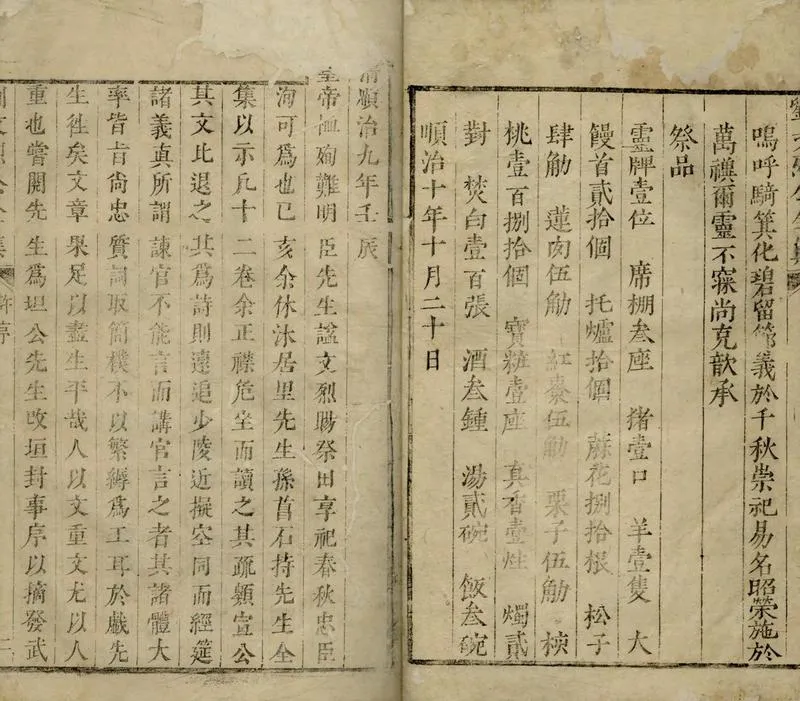 嗚呼騎箕化碧留節義於千秋崇祀易名昭榮施於
萬禩爾靈不寐尚克歆承
祭品
靈牌壹位 席棚叁座 猪壹口 羊壹隻 大
饅首貳拾個 托爐拾個 蔴花捌拾根 松子
肆觔 蓮肉伍觔 紅棗伍觔 栗子伍觔 核
桃壹百捌拾個 寶粧壹座 真香壹炷 燭貳
對 焚白壹百張 酒叁鍾 湯貳碗 飯叁碗
順治十年十月二十日
清順治九年壬辰
皇帝恤殉難明臣先生諡文烈賜祭田享祀春秋忠臣
洵可為也已亥余休沐居里先生孫菖石持先生全
集以示凡十二卷余正襟危坐而讀之其疏類宣公
其文比退之其為詩則遠追少陵近擬空同而經筵
諸義真所謂諫官不能言而講官言之者其諸體大
率皆旨尚忠質詞取簡樸不以繁縟為工耳於戲先
生徃矣文章果足以盡生平哉人以文重文尤以人
重也嘗閱先生為坦公先生改垣封事序以摘發武
文烈公全集